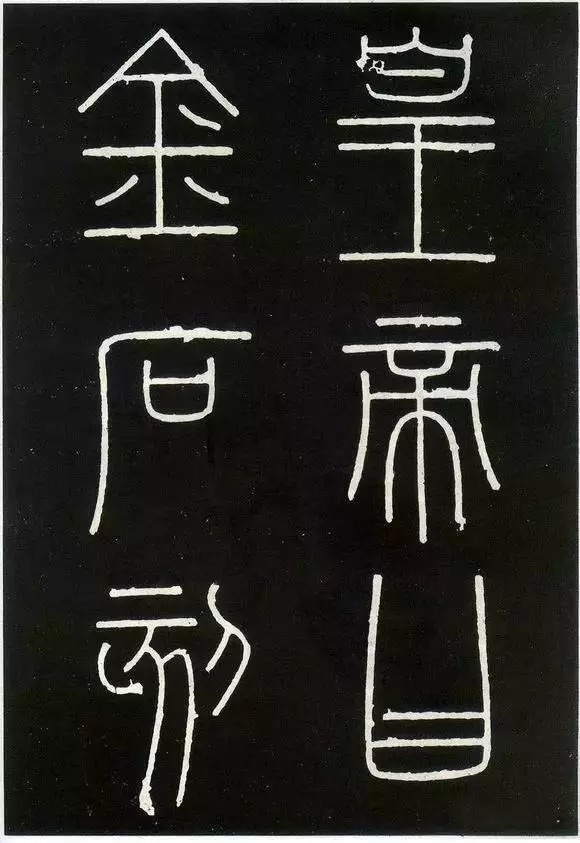 皇帝曰
金石刻